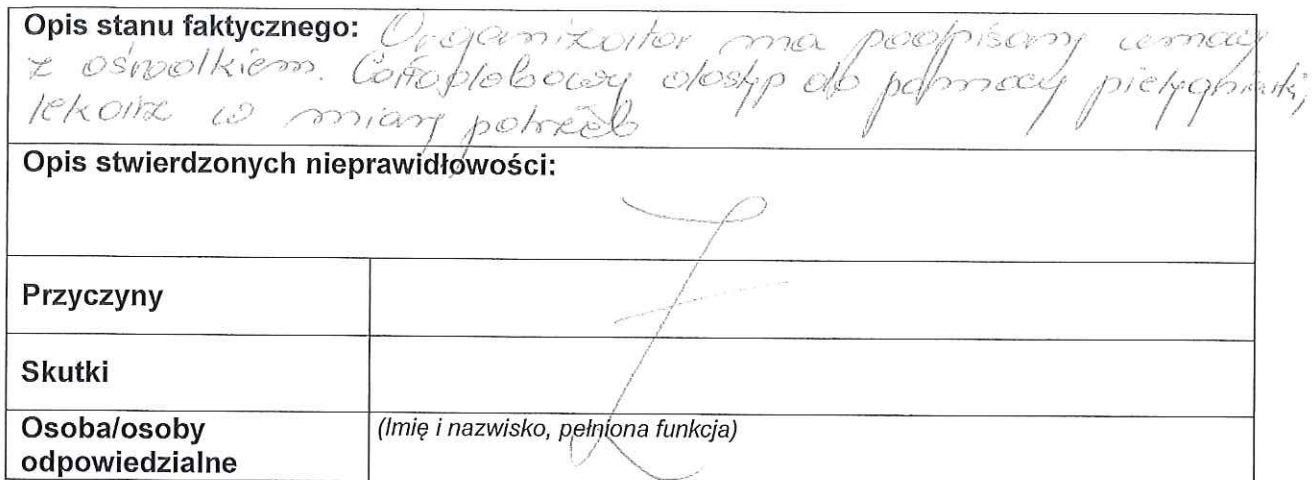 Opis stanu faktycznego: Organizator ma podpisany umowę
z ośrodkiem. Całodobowy dostęp do pomocy pielęgniarki,
lekarz w miarę potrzeb
Opis stwierdzonych nieprawidłowości:
Przyczyny
Skutki
Osoba/osoby
odpowiedzialne
(Imię i nazwisko, pełniona funkcja)